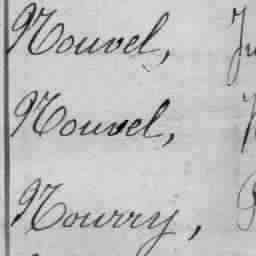 Nouvel,
Nouvel,
Nourry,